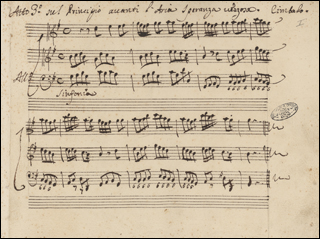 Atto 3º. sul Principio avanti l'Aria Speranza Cimbalo.
All
Sinfonia